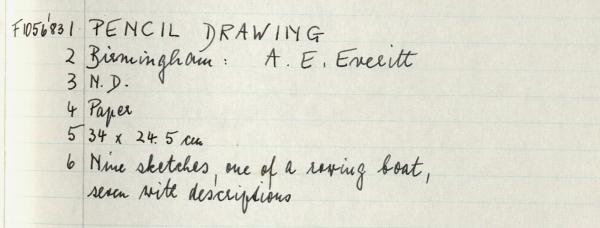 F1056'83 1 PENCIL DRAWING
2 Birmingham: A. E. Everitt
3 N.D.
4 Paper
5 34 x 24.5 cm
6 Nine sketches, one of a rowing boat,
seven with descriptions